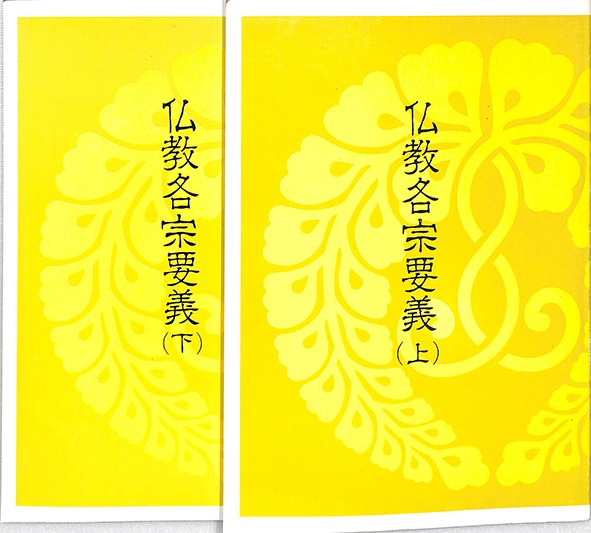 仏教各宗要義(上)
仏教各宗要義(下)